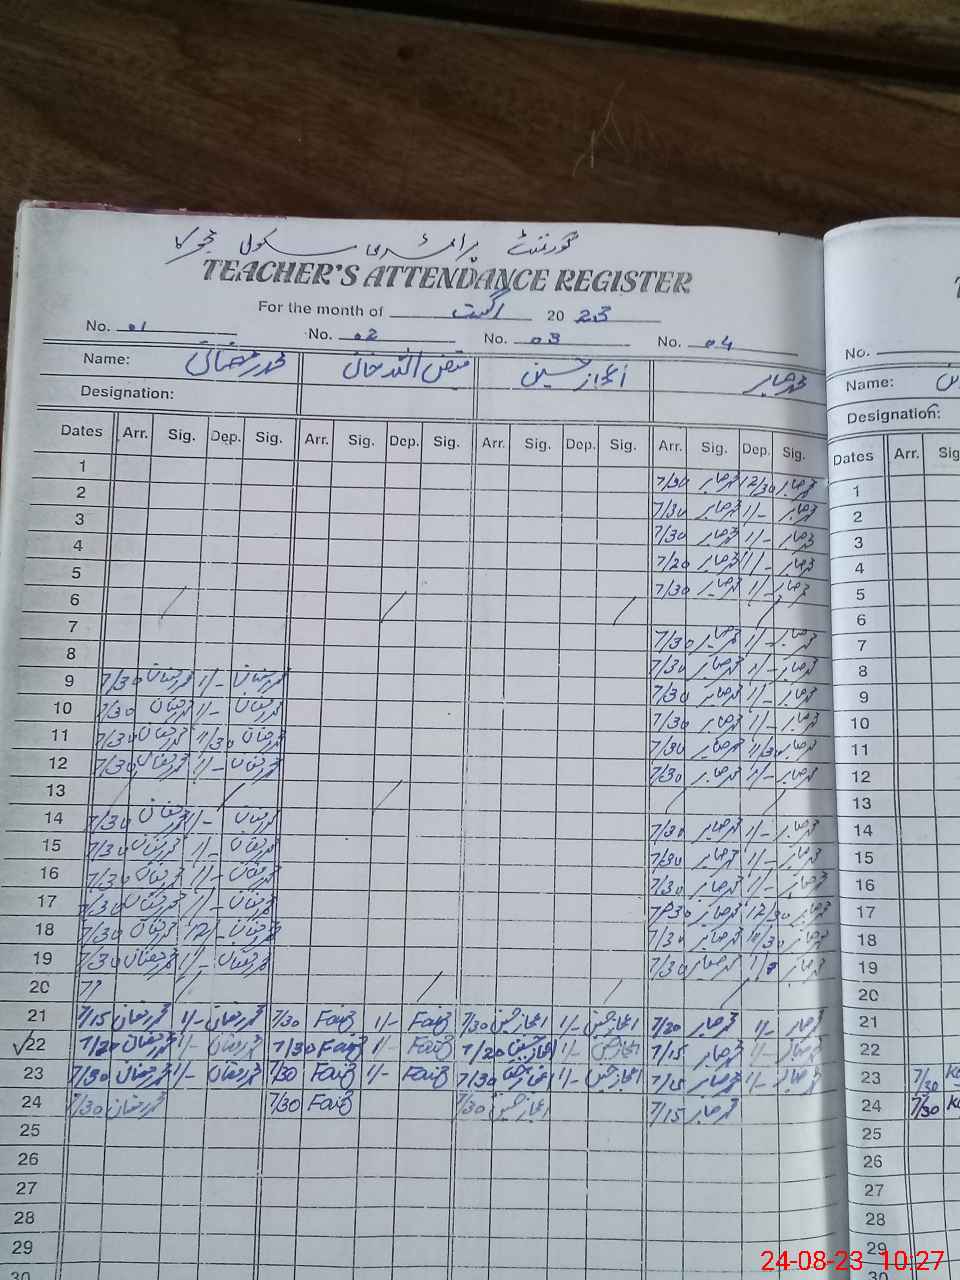 گورنمنٹ پرائمری سکول
TEACHER'S ATTENDANCE REGISTER
For the month of اگست 2023
No. 01 No. 02 No. 03 No. 04 No.
Name: محمد رمضان فیض اللہ خان اعجاز حسین محمد صابر Name:
Designation: Designation:
Dates Arr. Sig. Dep. Sig. Arr. Sig. Dep. Sig. Arr. Sig. Dep. Sig. Arr. Sig. Dep. Sig. Dates Arr. Sig
1 7/30 محمد صابر 12/30 محمد صابر 1
2 7/30 محمد صابر 1/- محمد صابر 2
3 7/30 محمد صابر 1/- محمد صابر 3
4 7/20 محمد صابر 1/- محمد صابر 4
5 7/30 محمد صابر 1/- محمد صابر 5
6 6
7 7/30 محمد صابر 1/- محمد صابر 7
8 7/30 محمد صابر 1/- محمد صابر 8
9 7/30 محمد رمضان 1/- محمد رمضان 7/30 محمد صابر 1/- محمد صابر 9
10 7/30 محمد رمضان 1/- محمد رمضان 7/30 محمد صابر 1/- محمد صابر 10
11 7/30 محمد رمضان 11/30 محمد رمضان 7/30 محمد صابر 11/30 محمد صابر 11
12 7/30 محمد رمضان 1/- محمد رمضان 7/30 محمد صابر 1/- محمد صابر 12
13 13
14 7/30 محمد رمضان 1/- محمد رمضان 7/30 محمد صابر 1/- محمد صابر 14
15 7/30 محمد رمضان 1/- محمد رمضان 7/30 محمد صابر 1/- محمد صابر 15
16 7/30 محمد رمضان 1/- محمد رمضان 7/30 محمد صابر 1/- محمد صابر 16
17 7/30 محمد رمضان 1/- محمد رمضان 7/30 محمد صابر 12/30 محمد صابر 17
18 7/30 محمد رمضان 12/- محمد رمضان 7/30 محمد صابر محمد صابر 18
19 7/30 محمد رمضان 1/- محمد رمضان 7/30 محمد صابر محمد صابر 19
20 20
21 7/15 محمد رمضان 1/- محمد رمضان 7/30 Faiz 1/- Faiz 7/30 اعجاز حسین 1/- اعجاز حسین 7/20 محمد صابر 1/- محمد صابر 21
✓22 7/20 محمد رمضان 1/- محمد رمضان 7/30 Faiz 1/- Faiz 7/20 اعجاز حسین 1/- اعجاز حسین 7/15 محمد صابر 1/- محمد صابر 22
23 7/30 محمد رمضان 1/- محمد رمضان 7/30 Faiz 1/- Faiz 7/30 اعجاز حسین 1/- اعجاز حسین 7/15 محمد صابر 1/- محمد صابر 23 7/30
24 7/30 محمد رمضان 7/30 Faiz 7/30 اعجاز حسین 7/15 محمد صابر 24 7/30
25 25
26 26
27 27
28 28
29 29
30 30
24-08-23 10:27